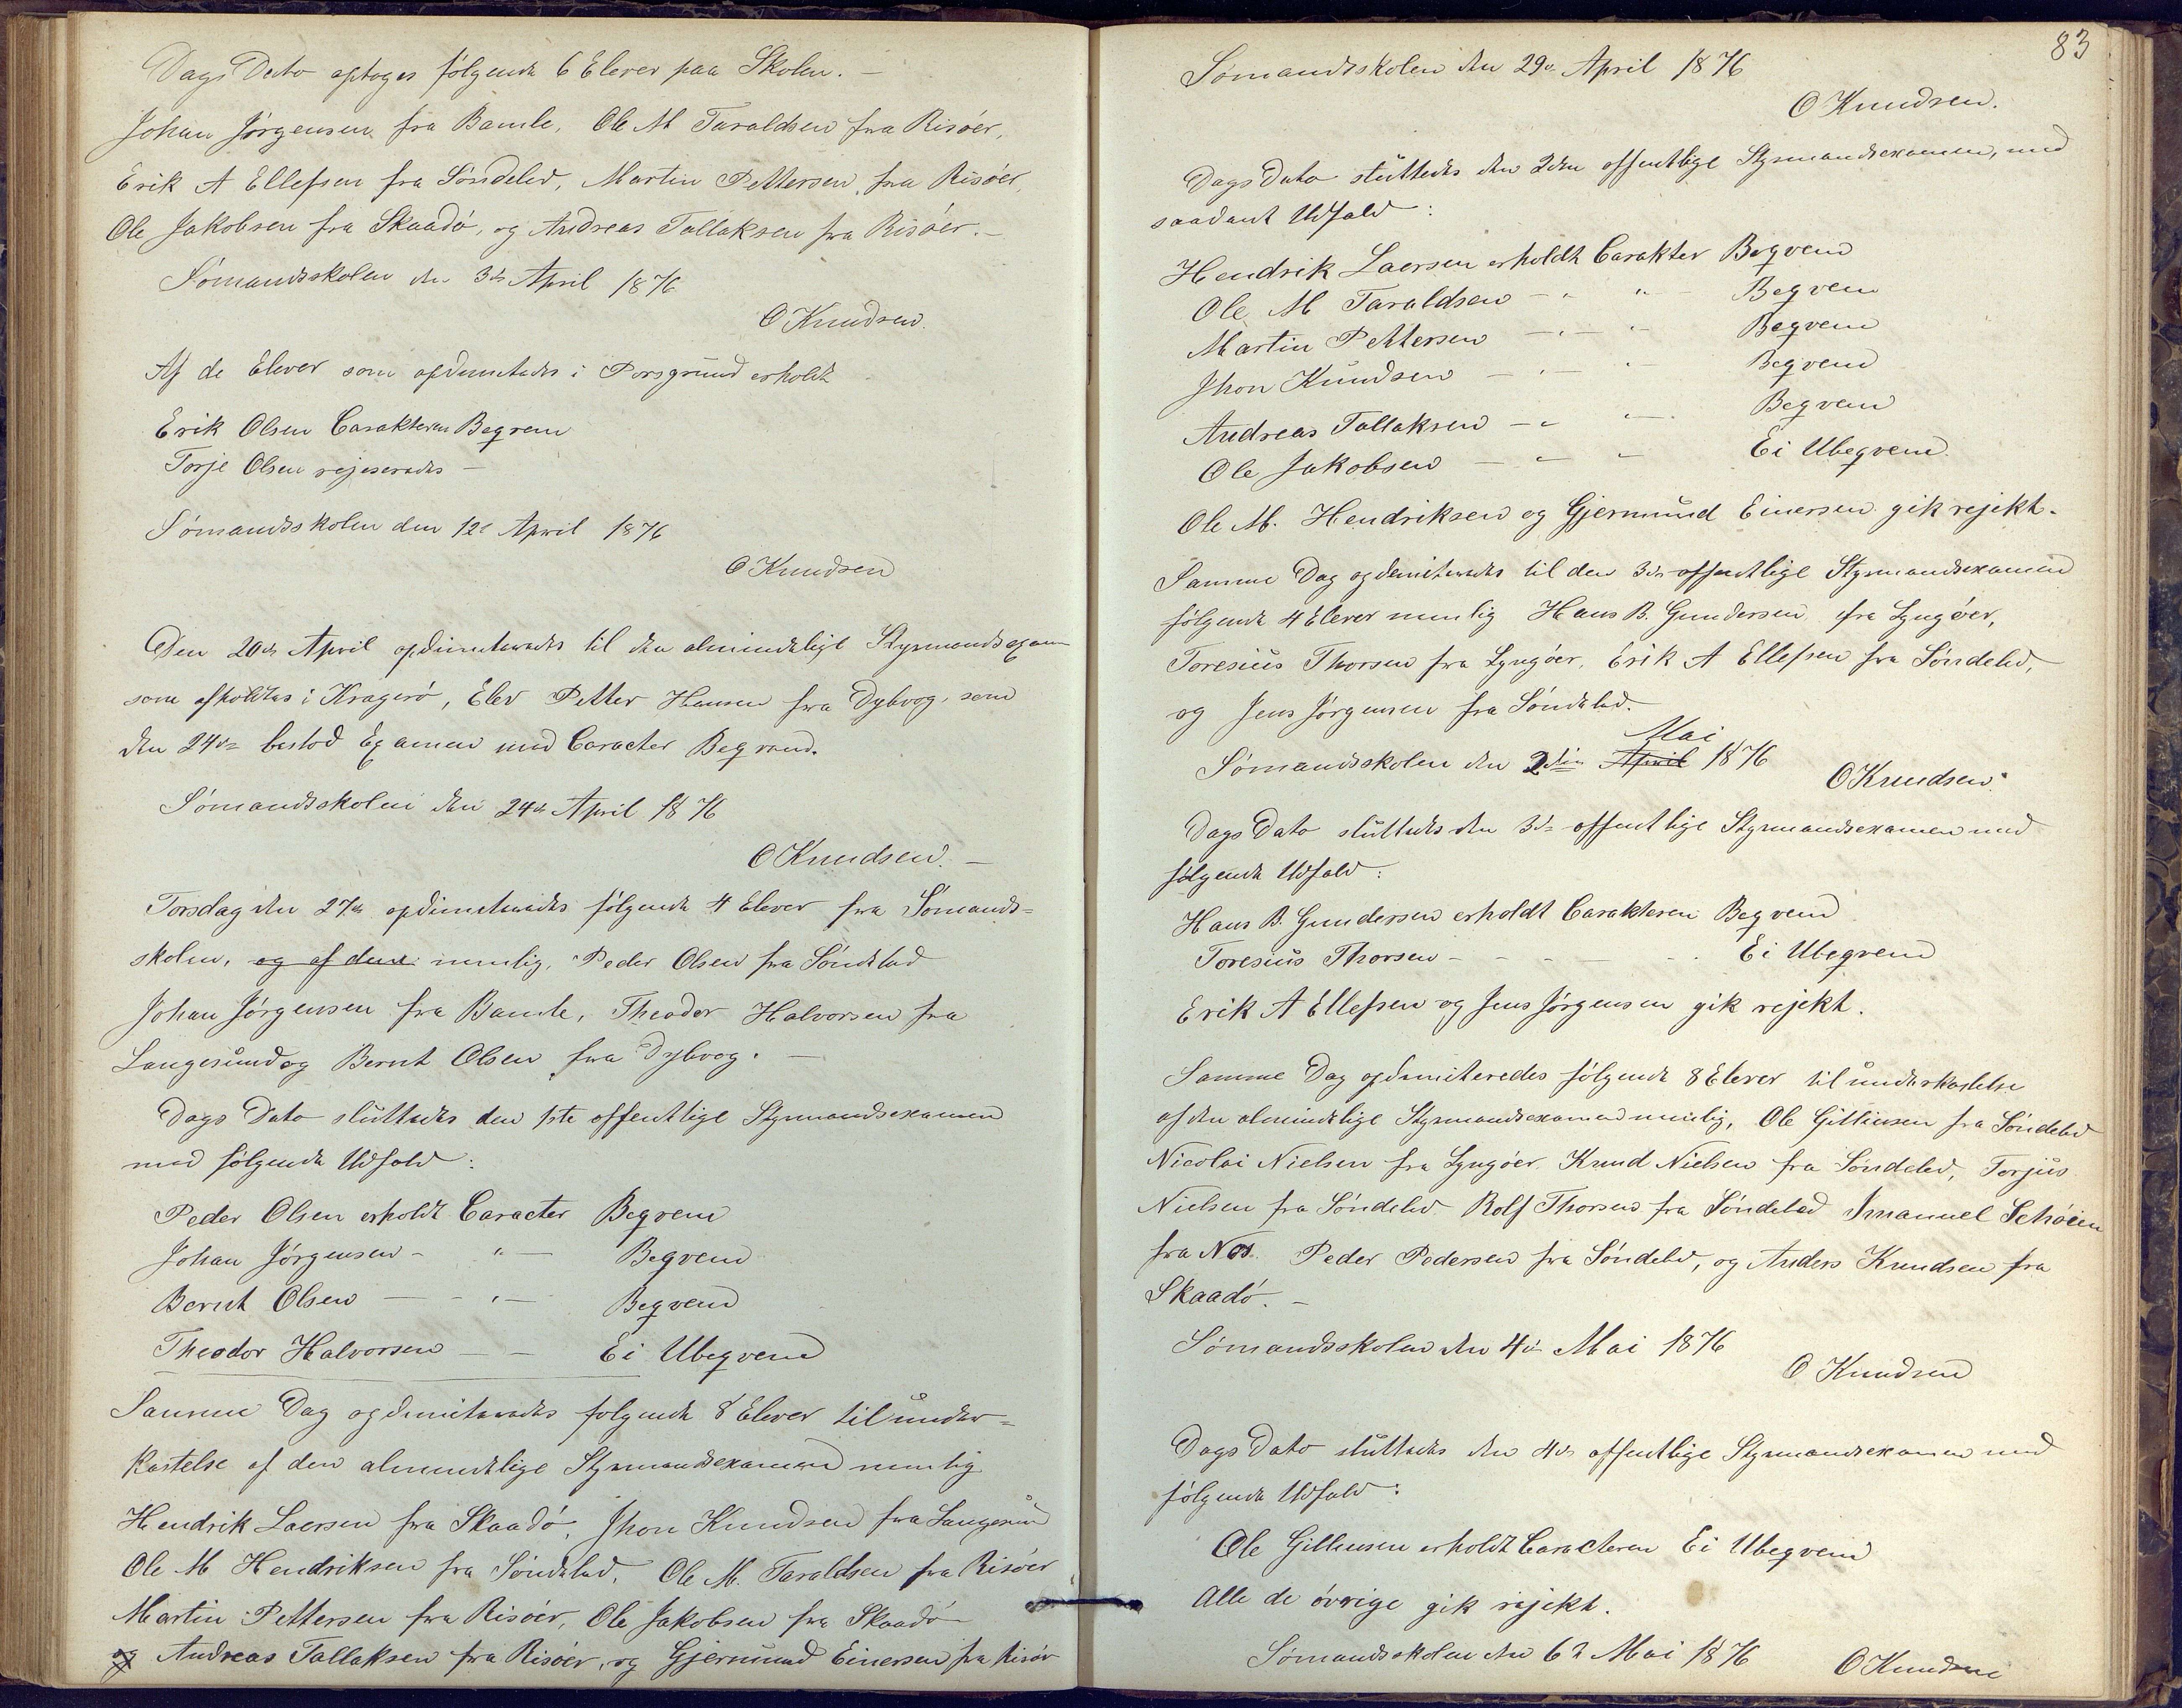 Dags Dato optoges følgende 6 Elever paa Skolen. —
Johan Jørgensen fra Bamle, Ole M Taraldsen fra Risøer,
Erik A Ellefsen fra Søndeled, Martin Pettersen, fra Risøer,
Ole Jakobsen fra Skaadø, og Andreas Tallaksen fra Risøer. —
Sømandsskolen den 3de April 1876
O Knudsen.
Af de Elever som opdimiteredes i Porsgrund erholdt
Erik Olsen Carakteren Beqvem
Torje Olsen rejeseredes —
Sømandsskolen den 12te April 1876
O Knudsen
Den 20de April opdimiteredes til den almindelige Styrmandsexamen
som afholdtes i Kragerø, Elev Petter Hansen fra Dybvog, som
den 24de bestod Examen med Caracter Beqvem.
Sømandsskolen den 24de April 1876
O Knudsen. —
Torsdag den 27de opdimiteredes følgende 4 Elever fra Sømands=
skolen, og af dem nemlig, Peder Olsen fra Søndeled
Johan Jørgensen fra Bamle, Theodor Halvorsen fra
Langesund og Bernt Olsen fra Dybvog. —
Dags Dato sluttedes den 1ste offentlige Styrmandsexamen
med følgende Udfald:
Peder Olsen erholdt Caracter Beqvem
Johan Jørgensen - " — Beqvem
Bernt Olsen — - " — Beqvem
Theodor Halvorsen — — Ei Ubeqvem
Samme Dag opdimiteredes følgende 8 Elever til under=
kastelse af den almindelige Styrmandsexamen nemlig
Hendrik Laersen fra Skaadø, Jhon Knudsen fra Langesun
Ole M Hendriksen fra Søndeled, Ole M. Taraldsen fra Risøer
Martin Pettersen fra Risøer, Ole Jakobsen fra Skaadø
og Andreas Tallaksen fra Risøer, og Gjermund Einersen fra Risør
83
Sømandsskolen den 29de April 1876
O Knudsen.
Dags Dato sluttedes den 2den offentlige Styrmandsexamen, med
saadant Udfald:
Hendrik Laersen erholdt Carakter Beqvem
Ole M Taraldsen — " " — Beqvem
Martin Pettersen — " — " Beqvem
Jhon Knudsen — " — " Beqvem
Andreas Tallaksen — " " — Beqvem
Ole Jakobsen — " " Ei Ubeqvem
Ole M. Hendriksen og Gjermund Einersen gik rejekt.
Samme Dag opdemiteredes til den 3die offentlige Styrmandsexamen
følgende 4 Elever nemlig Hans B. Gundersen fra Lyngøer,
Toresius Thorsen fra Lyngøer, Erik A Ellefsen fra Søndeled,
og Jens Jørgensen fra Søndeled.
Mai
Sømandsskolen den 2den April 1876
O Knudsen.
Dags Dato sluttedes den 3die offentlige Styrmandsexamen med
følgende Udfald:
Hans B. Gundersen erholdt Carakteren Beqvem
Toresius Thorsen - - - - - Ei Ubeqvem
Erik A Ellefsen og Jens Jørgensen gik rejekt.
Samme Dag opdimiteredes følgende 8 Elever til underkastelse
af den almindelige Styrmandsexamen nemlig, Ole Gillinsen fra Søndeled
Nicolai Nielsen fra Lyngøer, Knud Nielsen fra Søndeled, Torjus
Nielsen fra Søndeled Rolf Thorsen fra Søndeled Imanuel Schøien
fra Nes. Peder Pedersen fra Søndeled, og Anders Knudsen fra
Skaadø. —
Sømandsskolen den 4de Mai 1876
O Knudsen
Dags Dato sluttedes den 4de offentlige Styrmandsexamen med
følgende Udfald:
Ole Gillinsen erholdt Caracteren Ei Ubeqvem
Alle de øvrige gik rejekt.
Sømandsskolen den 6te Mai 1876
O Knudsen